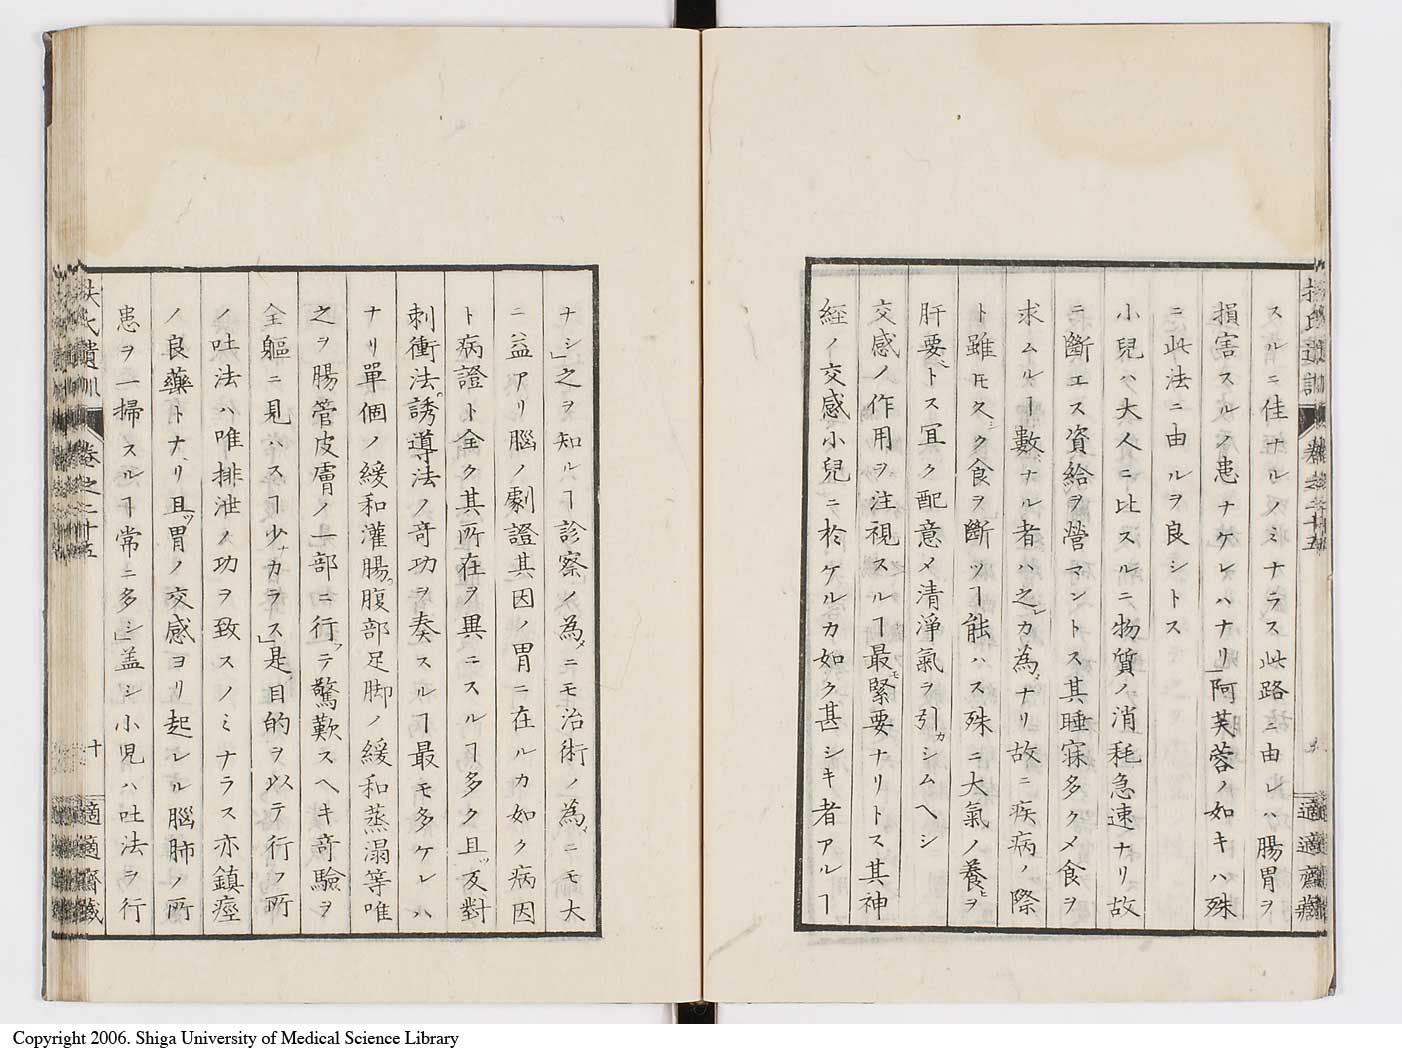 スルニ佳ナルノミナラス此路ニ由レハ腸胃ヲ
損害スルノ患ナケレハナリ」阿芙蓉ノ如キハ殊
ニ此法ニ由ルヲ良シトス
小兒ハ大人ニ比スルニ物質ノ消耗急速ナリ故
ニ斷エス資給ヲ營マントス其睡寐多クメ食ヲ
求ムルヿ數ナル者ハ之レカ為メナリ故ニ疾病ノ際
ト雖モ久シク食ヲ斷ツヿ能ハス殊ニ大氣ノ養ヒヲ
肝要トス冝ク配意メ清淨氣ヲ引カシムヘシ
交感ノ作用ヲ注視スルヿ最モ緊要ナリトス其神
經ノ交感小兒ニ於ケルカ如ク甚シキ者アルヿ
適適齋藏
ナシ」之ヲ知ルハヿ診察ノ為メニモ治術ノ為メニモ大
ニ益アリ腦ノ劇證其因ノ胃ニ在ルカ如ク病因
ト病證ト全ク其所在ヲ異ニスルヿ多ク且ツ反對
刺衝法。誘導法ノ竒功ヲ奏スルヿ最モ多ケレハ
ナリ單個ノ緩和灌腸。腹部足脚ノ緩和蒸溻等唯
之ヲ腸管皮膚ノ一部ニ行フテ驚歎スヘキ竒驗ヲ
全軀ニ見ハスヿ少ナカラス」是目的ヲ以テ行フ所
ノ吐法ハ唯排泄ノ功ヲ致スノミナラス亦鎮痙
ノ良藥トナリ且ツ胃ノ交感ヨリ起レル腦肺ノ所
患ヲ一掃スルヿ常ニ多シ」盖シ小児ハ吐法ヲ行
扶氏遺訓 卷之二十五 十 適適齋藏